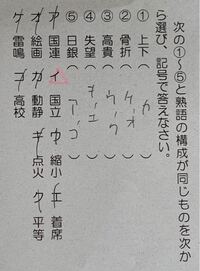 次の①～⑤と熟語の構成が同じものを次か
ら選び、記号で答えなさい。
① 上下（ カ
② 骨折（ ケ・オ
③ 高貴（ ウ・ク
④ 失望（ キ・エ
⑤ 日銀（ ア・コ
ア国連 イ国立 ウ縮小 エ着席
オ絵画 カ動静 キ点火 ク平等
ケ雷鳴 コ高校